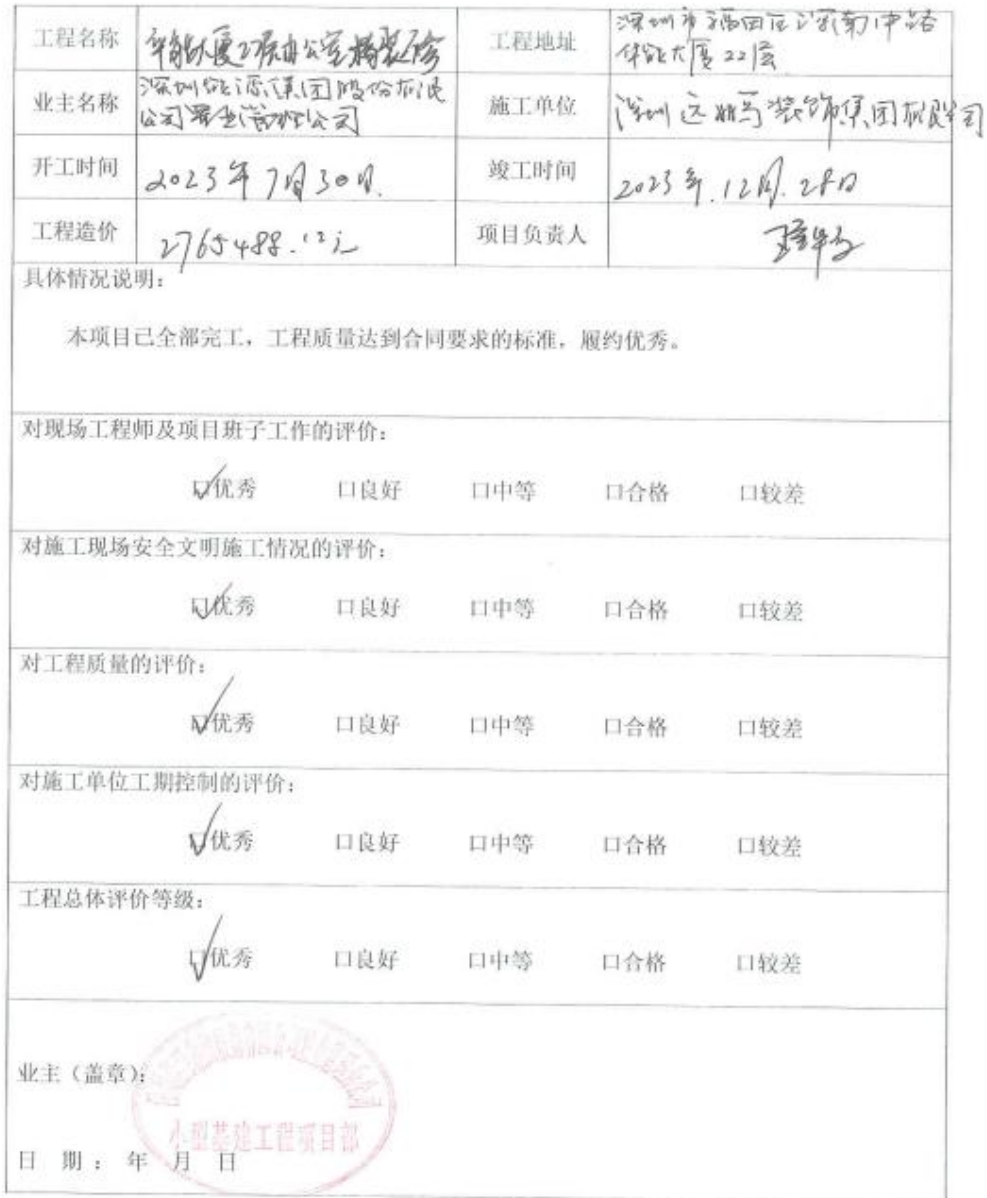 工程名称 华能大厦22层办公室精装修 工程地址 深圳市福田区深南中路
华能大厦22层
业主名称 深圳能源集团股份有限
公司置业管理公司 施工单位 深圳远鹏装饰集团有限公司
开工时间 2023年7月30日. 竣工时间 2023年.12月.28日
工程造价 2765488.12元 项目负责人
具体情况说明:
本项目已全部完工，工程质量达到合同要求的标准，履约优秀。
对现场工程师及项目班子工作的评价:
☑优秀 口良好 口中等 口合格 口较差
对施工现场安全文明施工情况的评价:
☑优秀 口良好 口中等 口合格 口较差
对工程质量的评价:
☑优秀 口良好 口中等 口合格 口较差
对施工单位工期控制的评价:
☑优秀 口良好 口中等 口合格 口较差
工程总体评价等级:
☑优秀 口良好 口中等 口合格 口较差
业主（盖章）:
小型基建工程项目部
日 期： 年 月 日